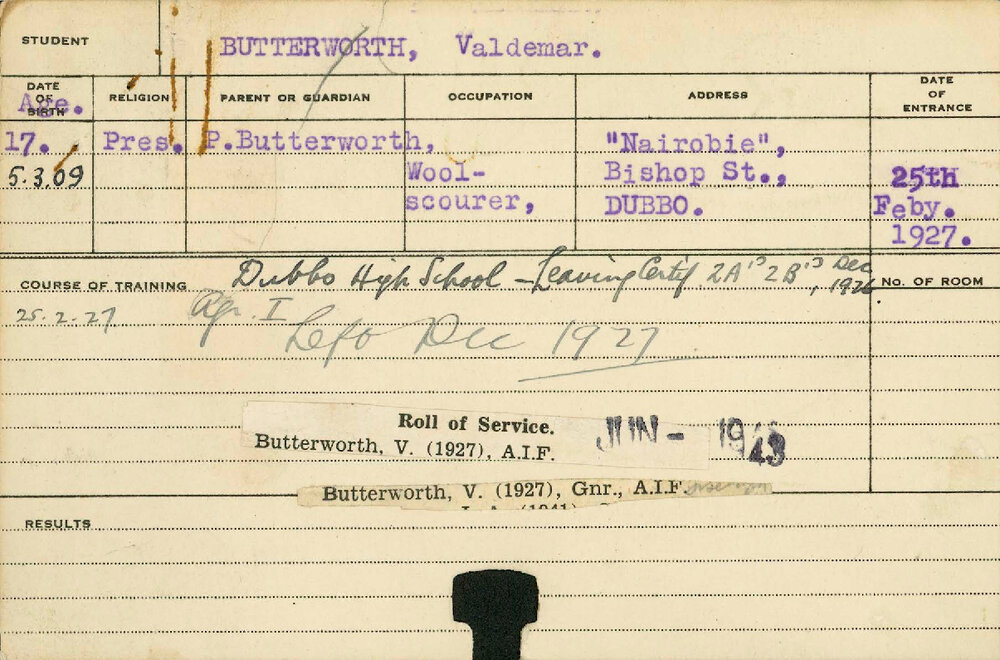 STUDENT BUTTERWORTH, Valdemar.
DATE OF BIRTH Age. RELIGION PARENT OR GUARDIAN OCCUPATION ADDRESS DATE OF ENTRANCE
17. Pres. P.Butterworth, "Nairobie",
5.3.09 Wool- Bishop St., 25th
scourer, DUBBO. Feby.
1927.
Dubbo High School - Leaving Certif 2A's 2B's Dec
COURSE OF TRAINING , 1926 NO. OF ROOM
25.2.27 Agr. I
Left Dec 1927
Roll of Service. JUN - 1943
Butterworth, V. (1927), A.I.F.
Butterworth, V. (1927), Gnr., A.I.F.
(1941)
RESULTS